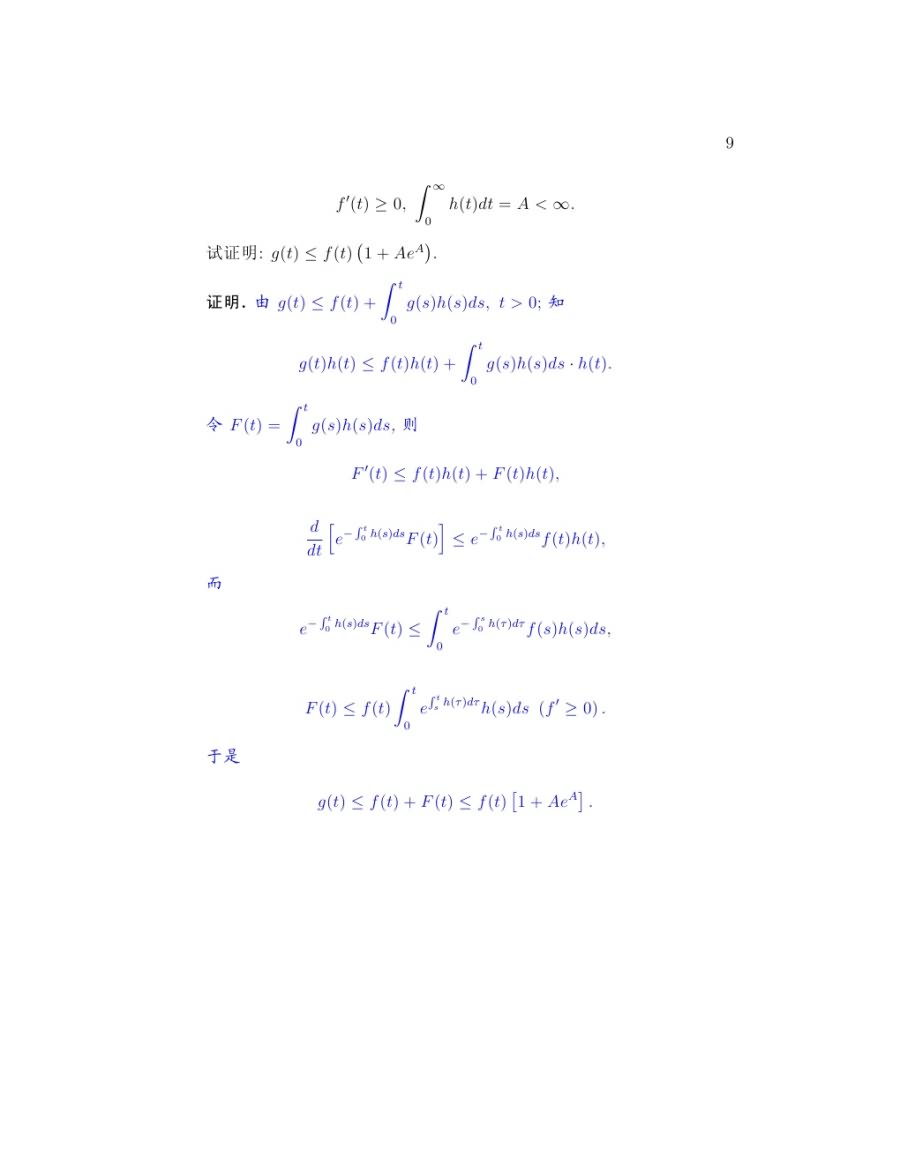 9
$f'(t) \geq 0, \int_0^\infty h(t)dt = A < \infty.$
试证明: $g(t) \leq f(t)\left(1 + Ae^A\right).$
证明. 由 $g(t) \leq f(t) + \int_0^t g(s)h(s)ds,\ t > 0;$ 知
$g(t)h(t) \leq f(t)h(t) + \int_0^t g(s)h(s)ds \cdot h(t).$
令 $F(t) = \int_0^t g(s)h(s)ds,$ 则
$F'(t) \leq f(t)h(t) + F(t)h(t),$
$\frac{d}{dt}\left[e^{-\int_0^t h(s)ds}F(t)\right] \leq e^{-\int_0^t h(s)ds}f(t)h(t),$
而
$e^{-\int_0^t h(s)ds}F(t) \leq \int_0^t e^{-\int_0^s h(\tau)d\tau}f(s)h(s)ds,$
$F(t) \leq f(t)\int_0^t e^{\int_s^t h(\tau)d\tau}h(s)ds\ (f' \geq 0).$
于是
$g(t) \leq f(t) + F(t) \leq f(t)\left[1 + Ae^A\right].$